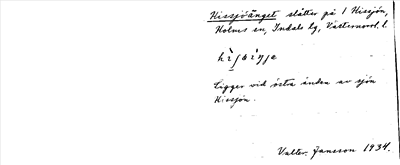 Hissjöänget slåtter på 1 Hissjön,
Holms sn, Indals tg, Västernorrl. l.
Ligger vid östra änden av sjön
Hissjön.
Valter Jansson 1934.